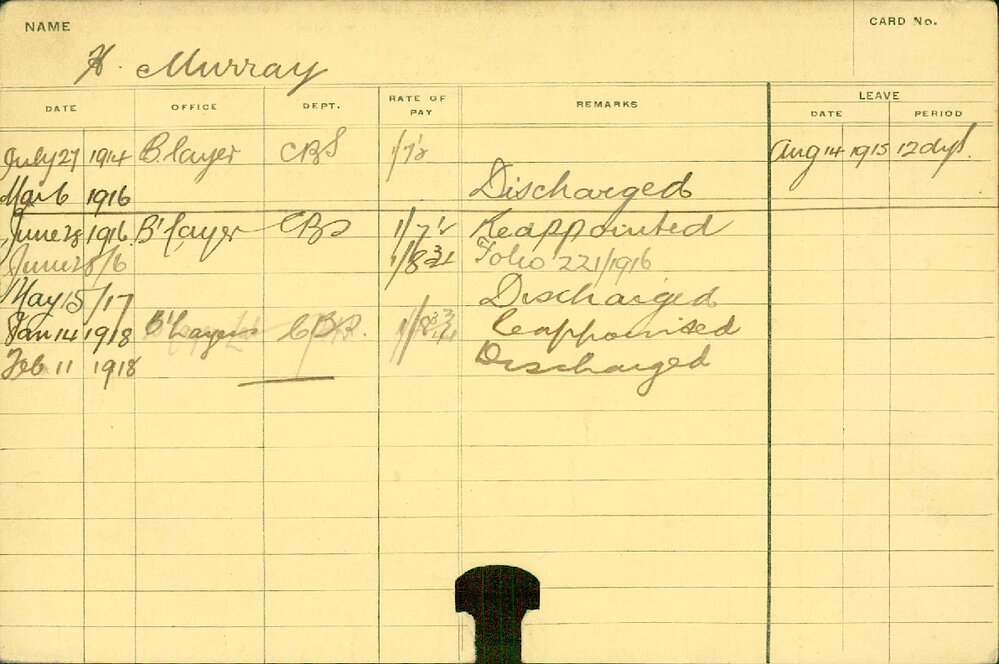 NAME
CARD No.
H. Murray
DATE OFFICE DEPT. RATE OF PAY REMARKS LEAVE
DATE PERIOD
July 27 1914 B'layer CBS 1/7½ Aug 14 1915 12 dys.
Mar 6 1916 Discharged
June 28 1916 B'layer CBS 1/7½ Reappointed
June 28/16 1/8¾ Folio 221/1916
May 15/17 Discharged
Jan 14 1918 B'layer Reappointed
Feb 11 1918 Discharged